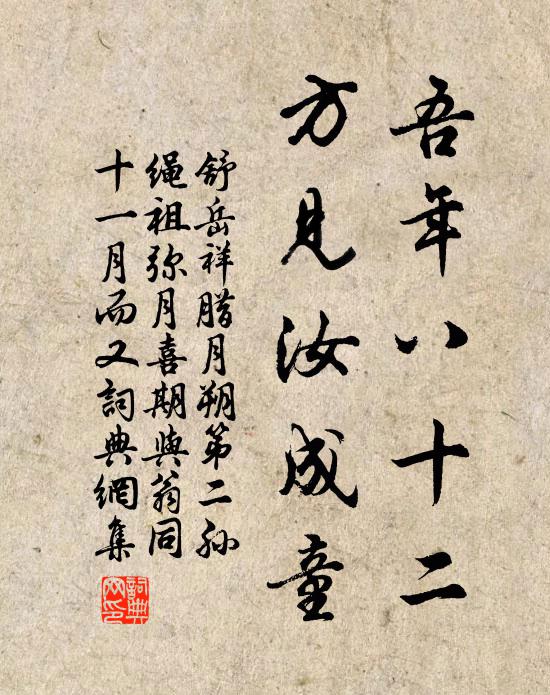 吾年八十二
方見汝成童
舒岳祥腊月朔第二孙
绳祖弥月喜期與翁同
十一月而又詞典網集
詞典網印